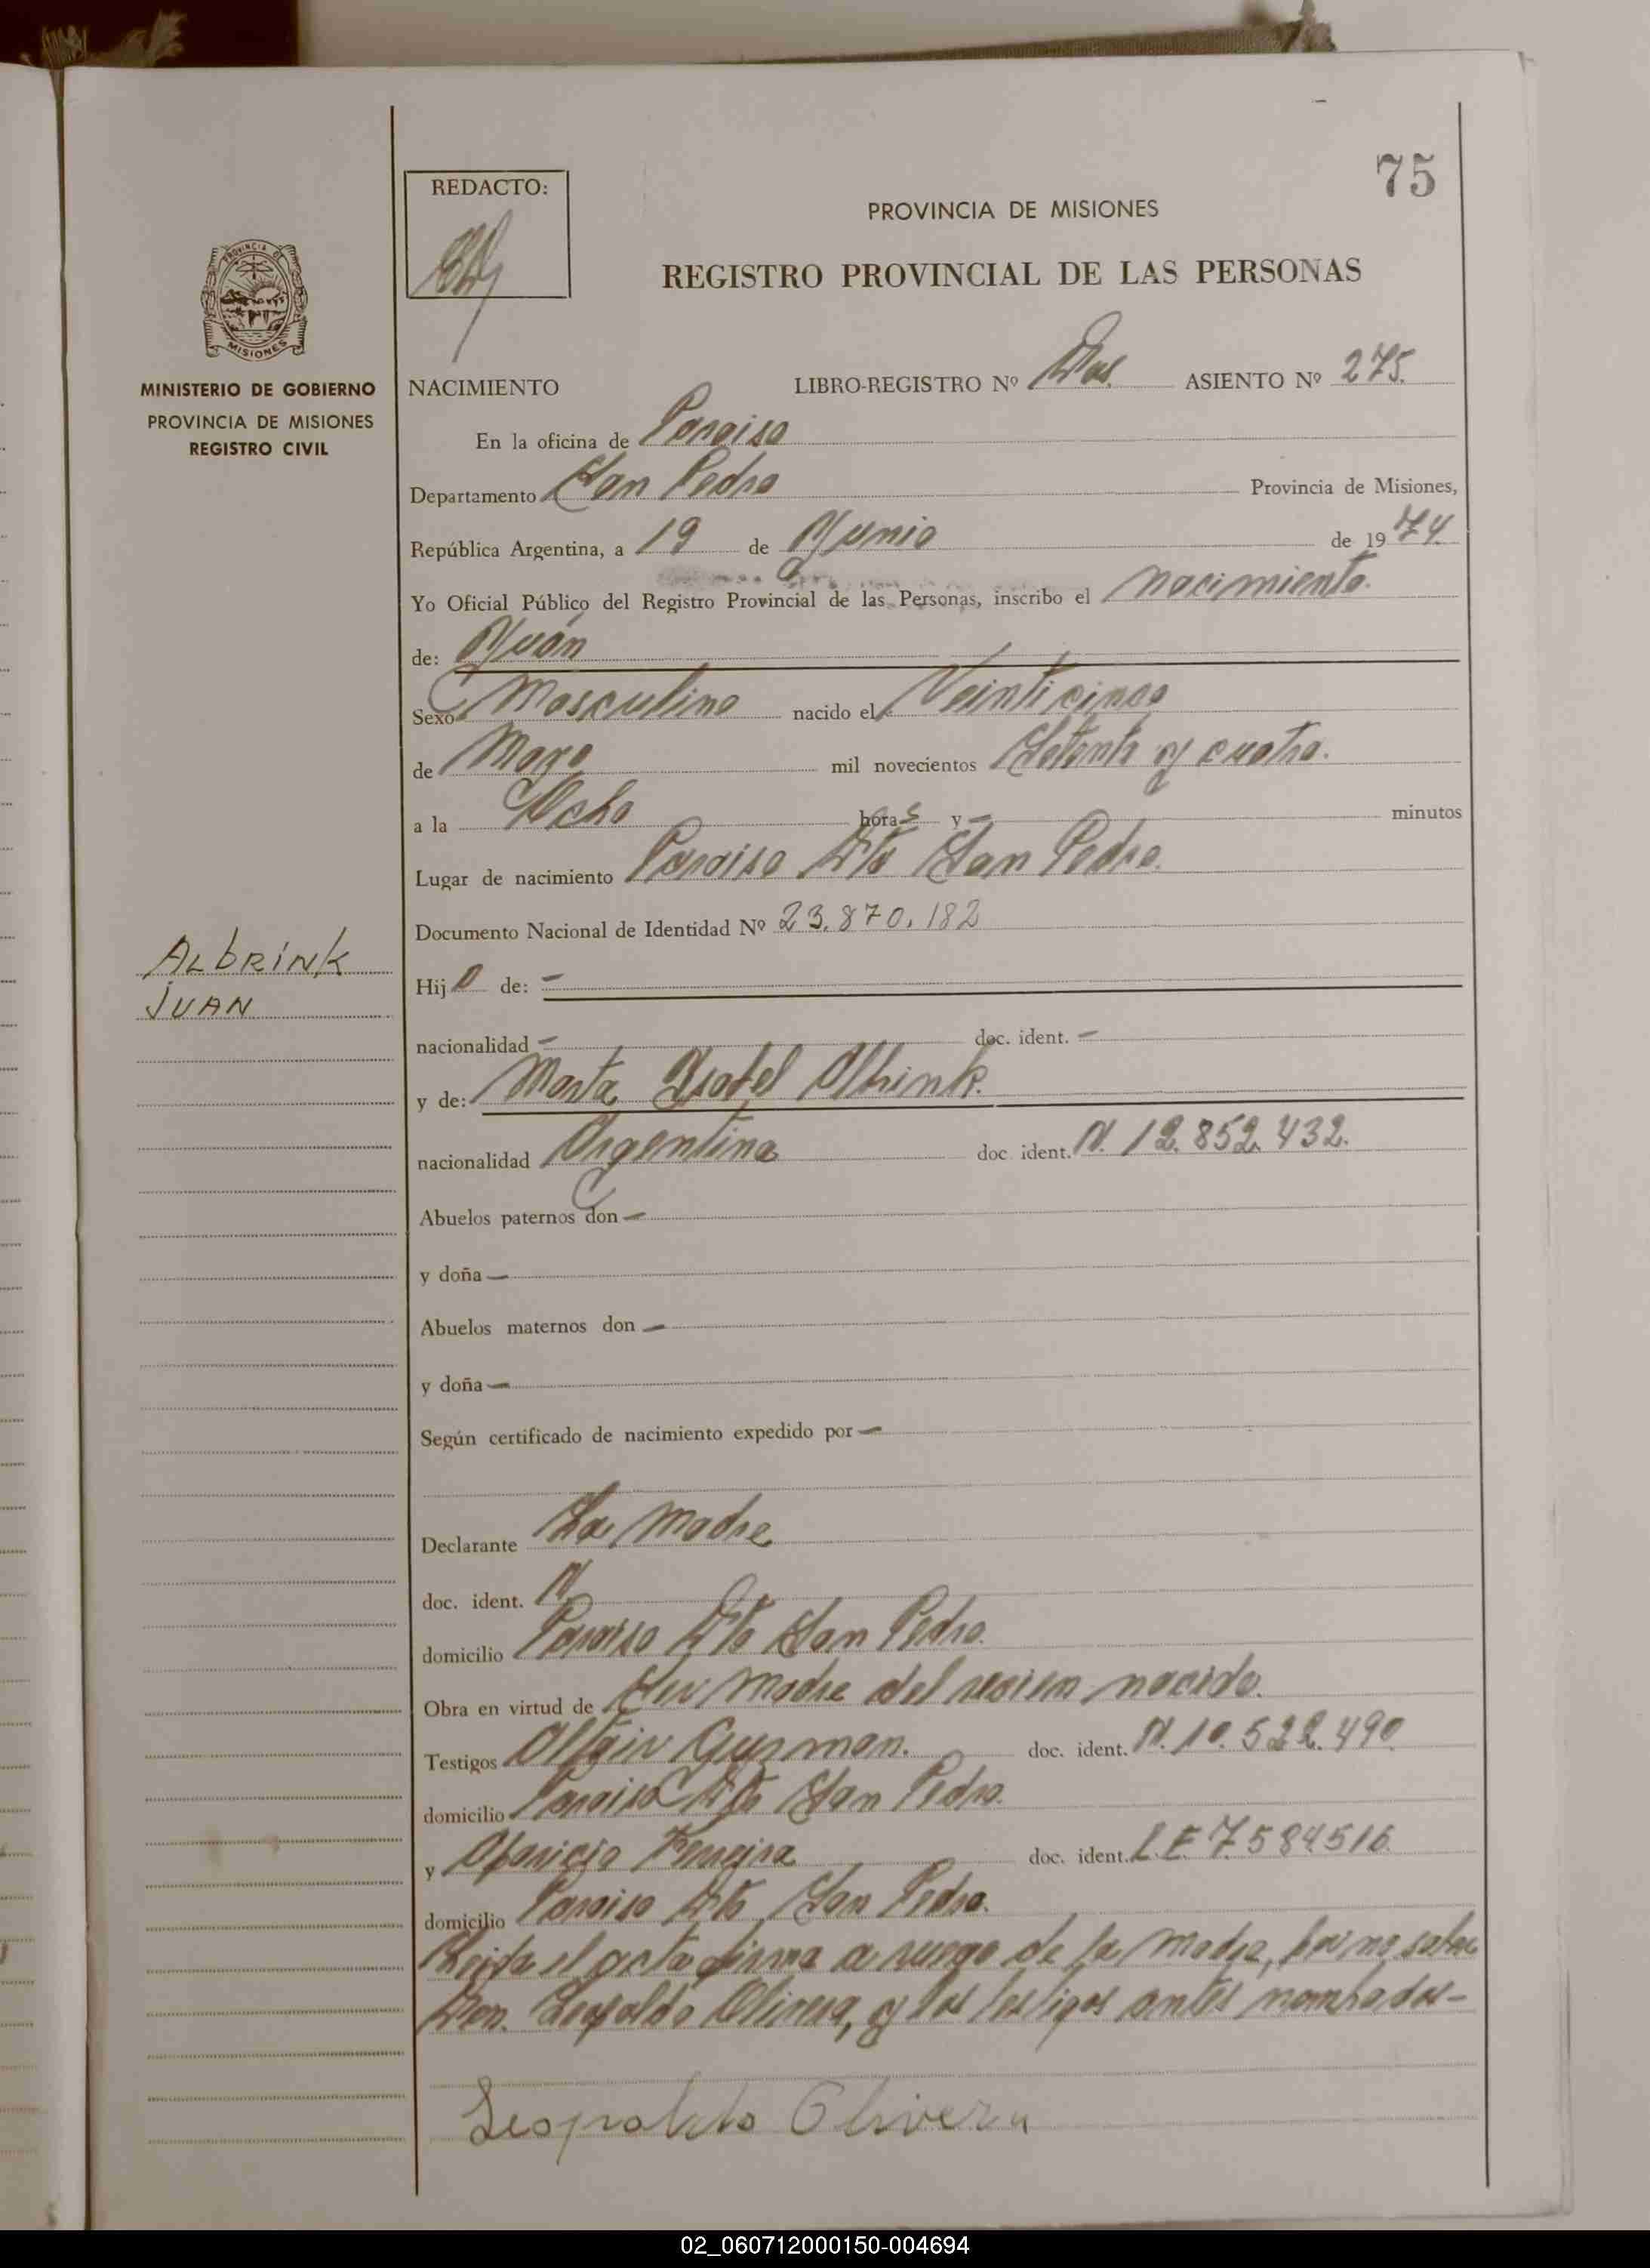 75
REDACTO:
PROVINCIA DE MISIONES
REGISTRO PROVINCIAL DE LAS PERSONAS
MISIONES
MINISTERIO DE GOBIERNO
PROVINCIA DE MISIONES
REGISTRO CIVIL
NACIMIENTO LIBRO-REGISTRO Nº Dos. ASIENTO Nº 275.
En la oficina de Paraiso
Departamento San Pedro Provincia de Misiones,
República Argentina, a 19 de Junio de 1974.
Yo Oficial Público del Registro Provincial de las Personas, inscribo el nacimiento.
de: Juán
Sexo Masculino nacido el Veinticinco
de Mayo mil novecientos Setenta y cuatro.
a la Ocho horas y - minutos
Lugar de nacimiento Paraiso Dto San Pedro.
Documento Nacional de Identidad Nº 23.870.182
ALbRiNK
JUAN
Hijo de: -
nacionalidad - doc. ident. -
y de: Marta Isabel Albrink.
nacionalidad Argentina doc. ident. N. 12.852.432.
Abuelos paternos don -
y doña -
Abuelos maternos don -
y doña -
Según certificado de nacimiento expedido por -
Declarante La Madre
doc. ident. N
domicilio Paraiso Dto San Pedro.
Obra en virtud de Ser Madre del recien nacido.
Testigos doc. ident. N. 10.522.490
domicilio Paraiso Dto San Pedro.
y Aparicio Ferreira doc. ident. L.E. 7.584.516.
domicilio Paraiso Dto San Pedro.
el acta firma a ruego de la Madre, por no saber
Don. Leopoldo Olivera, y los testigos antes nombrados-
Leopoldo Olivera
02_060712000150-004694